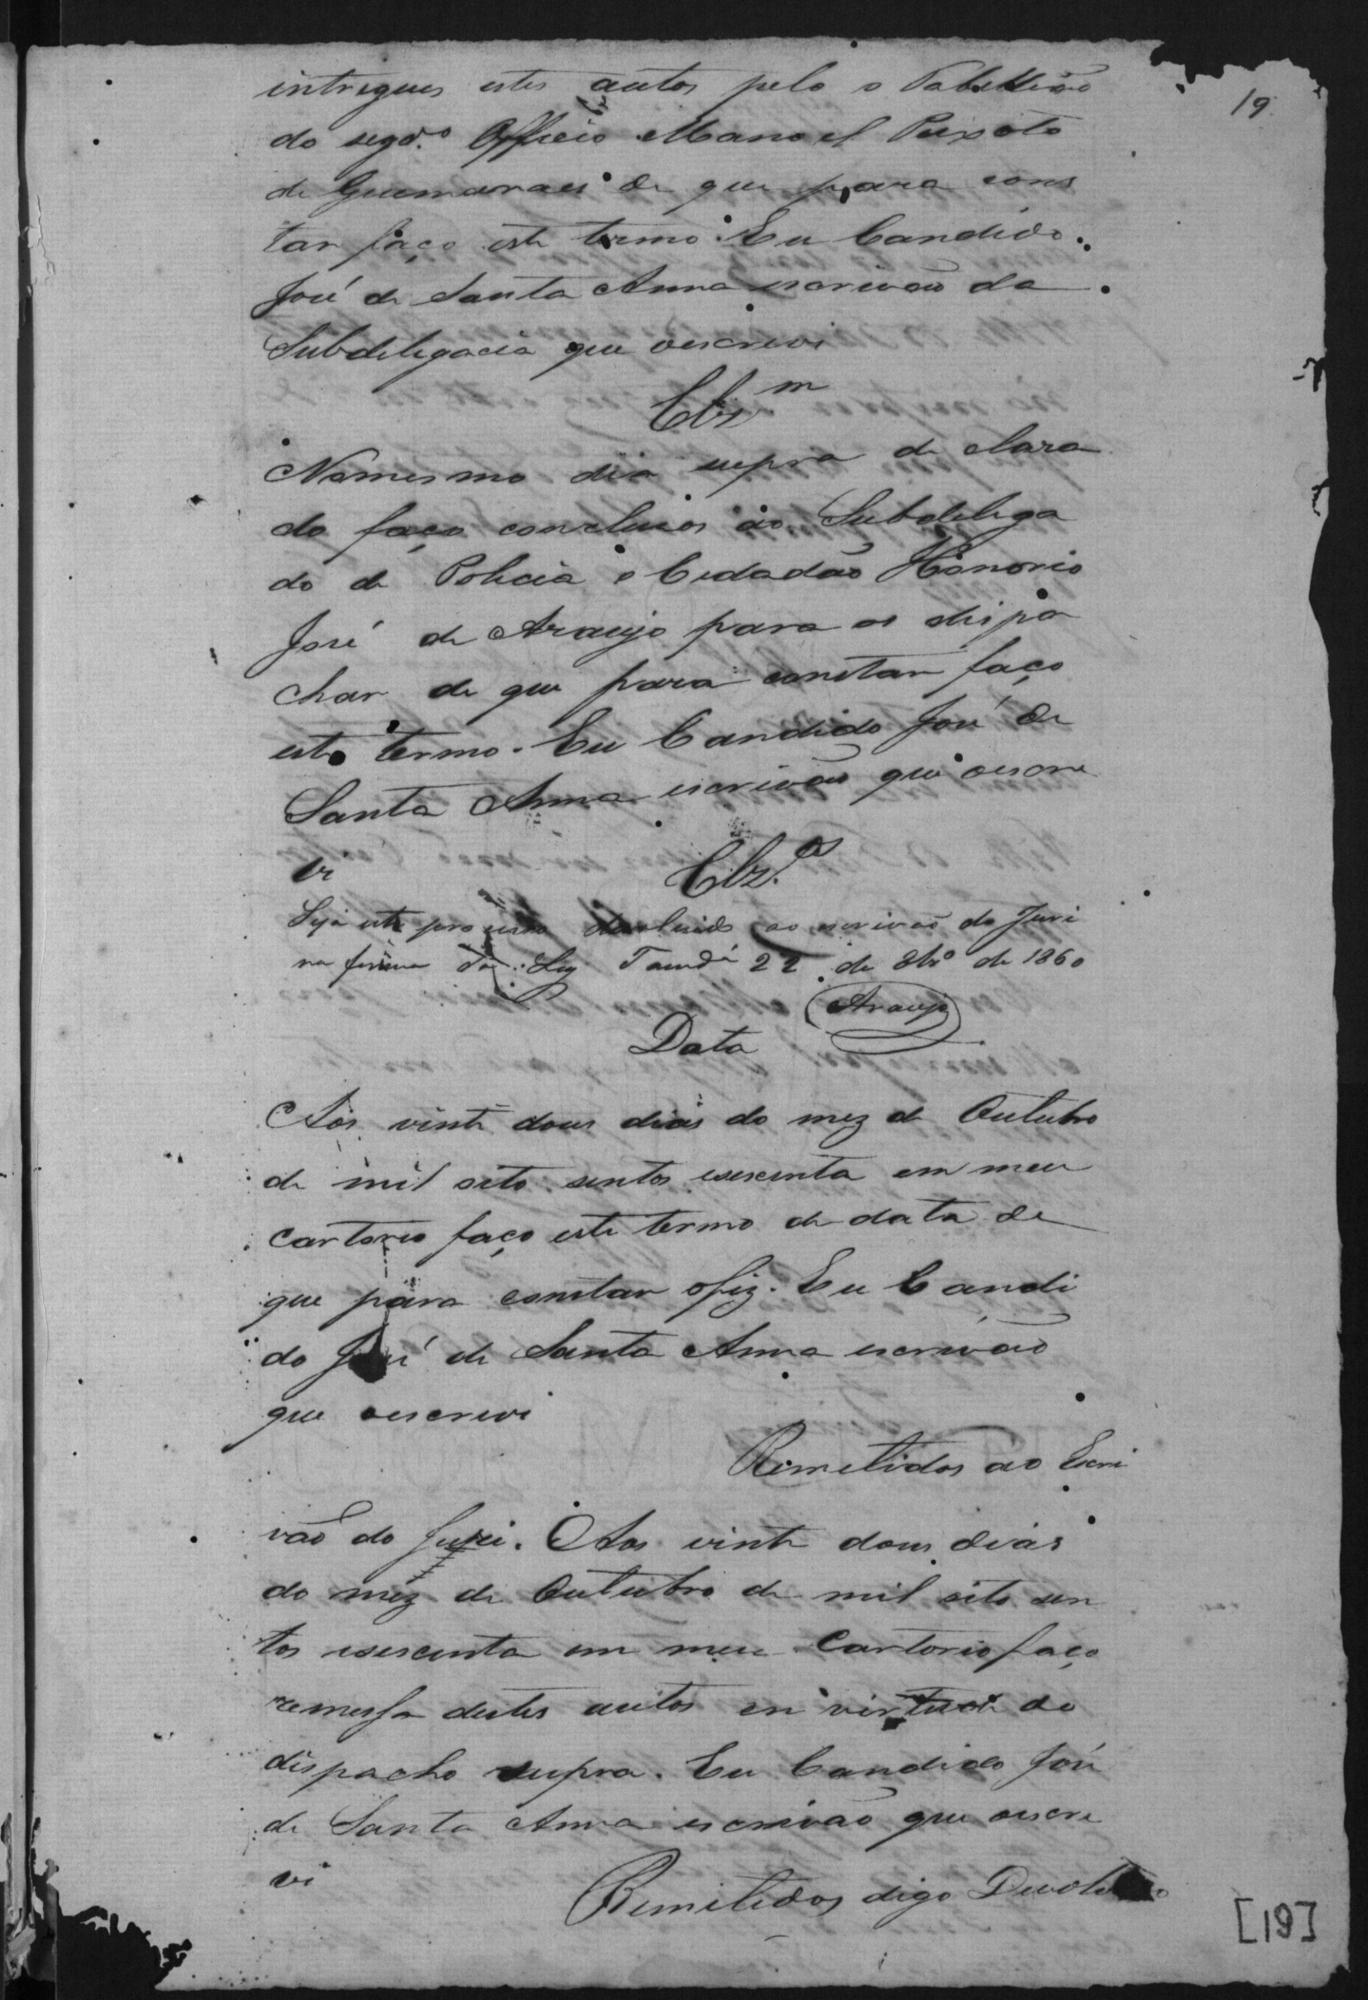 19
intregues estes autos pelo o Tabellião
do segdo. Officio Manoel Peixoto
de Guemaraes de que para cons
tar faço este termo. Eu Candido
José de Santa Anna escrivão da
Subdelegacia que oescrevi
Clzm
Nomesmo dia supra de clara
do faço concluzos ao Subdelega
do de Policia o Cidadão Honorio
José de Araujo para os dispa
char de que para constar faço
este termo. Eu Candido José de
Santa Anna escrivão que oescre
vi
Clz.os
Seja este processo devolvido ao escrivão do Juri
na forma da Ley 22 de 8bro de 1860
Araujo
Data
Aos vinte dous dias do mez de Outubro
de mil oito sentos esescenta em meu
Cartorio faço este termo de data de
que para constar ofiz. Eu Candi
do José de Santa Anna escrivão
que oescrevi
Remetidos ao Escri
vão do Juri. Aos vinte dous dias
do mez de Outubro de mil oito sen
tos esescenta em meu Cartorio faço
remessa destes autos en virtude do
dispacho supra. Eu Candido José
de Santa Anna escrivão que oescre
vi
Remetidos digo
[19]